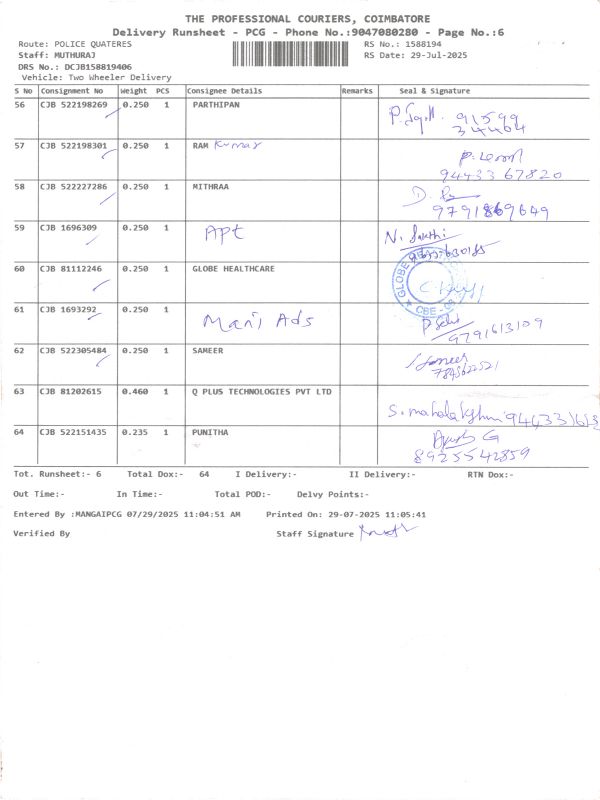 THE PROFESSIONAL COURIERS, COIMBATORE
Delivery Runsheet - PCG - Phone No.:9047080280 - Page No.:6
Route: POLICE QUATERES RS No.: 1588194
Staff: MUTHURAJ RS Date: 29-Jul-2025
DRS No.: DCJB158819406
Vehicle: Two Wheeler Delivery
S No Consignment No Weight PCS Consignee Details Remarks Seal & Signature
56 CJB 522198269 0.250 1 PARTHIPAN
91599
34404
57 CJB 522198301 0.250 1 RAM Kumar
94433 67820
58 CJB 522227286 0.250 1 MITHRAA
9791869649
59 CJB 1696309 0.250 1 Apt N. Sakthi
60 CJB 81112246 0.250 1 GLOBE HEALTHCARE GLOBE CBE
61 CJB 1693292 0.250 1 Mani Ads
9791613109
62 CJB 522305484 0.250 1 SAMEER Sameer
63 CJB 81202615 0.460 1 Q PLUS TECHNOLOGIES PVT LTD
S. mahalakshmi
64 CJB 522151435 0.235 1 PUNITHA
8925542859
Tot. Runsheet:- 6 Total Dox:- 64 I Delivery:- II Delivery:- RTN Dox:-
Out Time:- In Time:- Total POD:- Delvy Points:-
Entered By :MANGAIPCG 07/29/2025 11:04:51 AM Printed On: 29-07-2025 11:05:41
Verified By Staff Signature